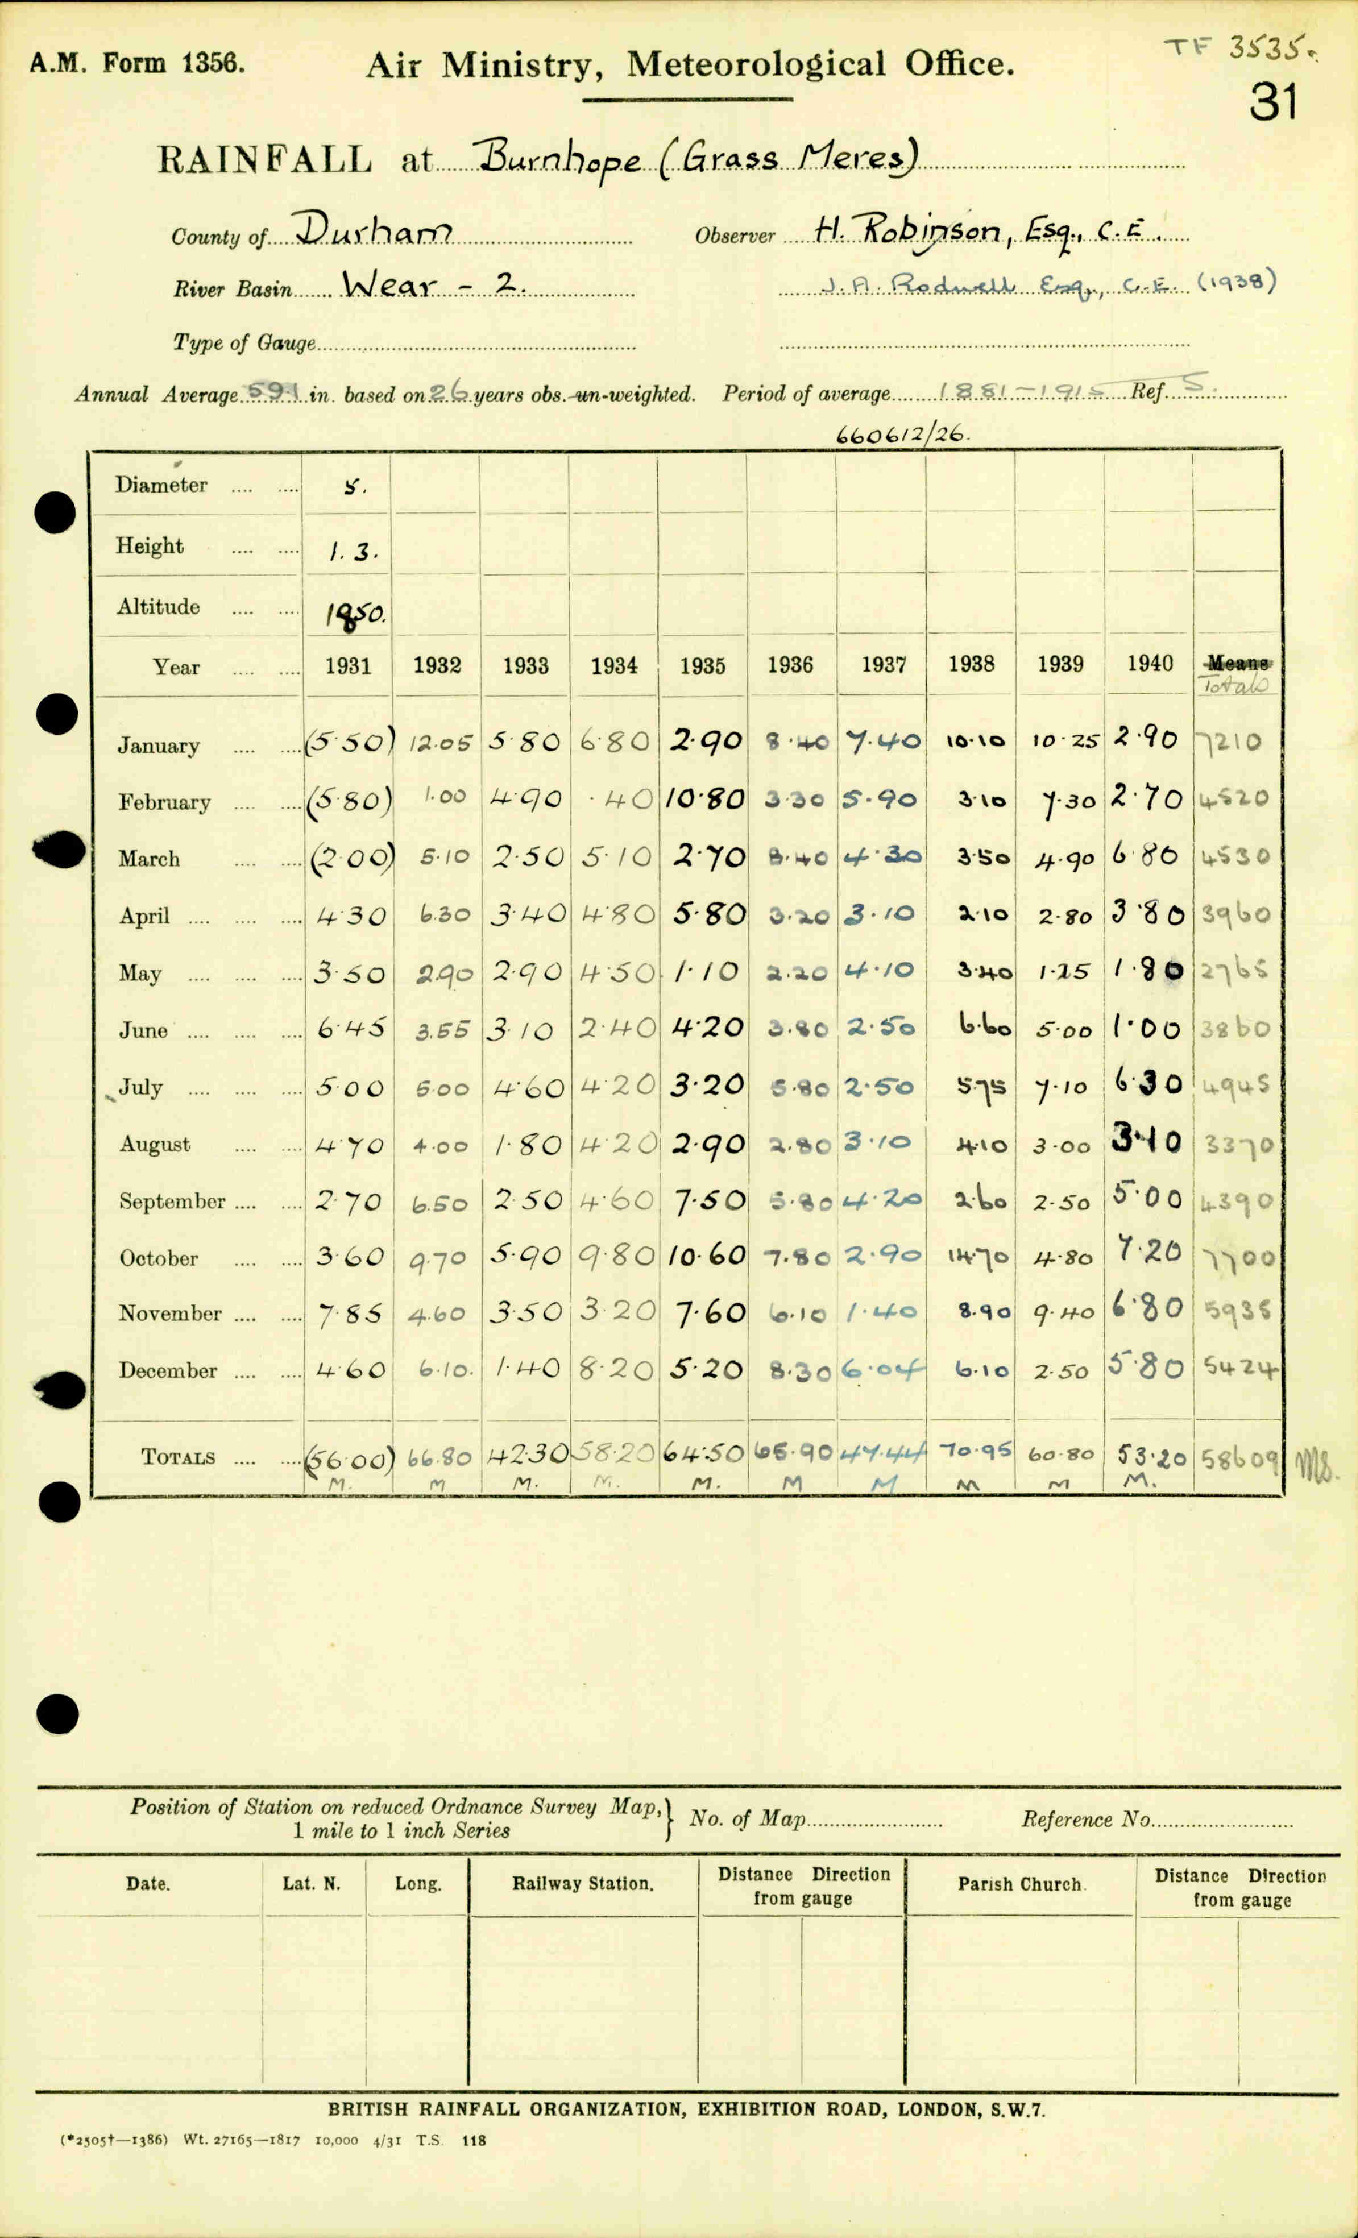 A.M. Form 1356.
Air Ministry, Meteorological Office.
TF 3535.
31
RAINFALL at Burnhope (Grass Meres)
County of Durham Observer H. Robinson, Esq., C.E.
River Basin Wear - 2. J. A. Rodwell Esq., C.E. (1938)
Type of Gauge
Annual Average 59.1 in. based on 26 years obs. un-weighted. Period of average 1881-1915 Ref. S.
660612/26.
Diameter 5.
Height 1.3.
Altitude 1850.
Year 1931 1932 1933 1934 1935 1936 1937 1938 1939 1940 Means
Totals
January (5.50) 12.05 5.80 6.80 2.90 8.40 7.40 10.10 10.25 2.90 7210
February (5.80) 1.00 4.90 .40 10.80 3.30 5.90 3.10 7.30 2.70 4520
March (2.00) 5.10 2.50 5.10 2.70 8.40 4.30 3.50 4.90 6.80 4530
April 4.30 6.30 3.40 4.80 5.80 3.20 3.10 2.10 2.80 3.80 3960
May 3.50 2.90 2.90 4.50 1.10 2.20 4.10 3.40 1.25 1.80 2765
June 6.45 3.55 3.10 2.40 4.20 3.80 2.50 6.60 5.00 1.00 3860
July 5.00 5.00 4.60 4.20 3.20 5.80 2.50 5.75 7.10 6.30 4945
August 4.70 4.00 1.80 4.20 2.90 2.80 3.10 4.10 3.00 3.10 3370
September 2.70 6.50 2.50 4.60 7.50 5.80 4.20 2.60 2.50 5.00 4390
October 3.60 9.70 5.90 9.80 10.60 7.80 2.90 14.70 4.80 7.20 7700
November 7.85 4.60 3.50 3.20 7.60 6.10 1.40 8.90 9.40 6.80 5935
December 4.60 6.10 1.40 8.20 5.20 8.30 6.04 6.10 2.50 5.80 5424
TOTALS (56.00) 66.80 42.30 58.20 64.50 65.90 47.44 70.95 60.80 53.20 58609 Ms.
M. M M. M. M. M M M M M.
Position of Station on reduced Ordnance Survey Map,} No. of Map Reference No.
1 mile to 1 inch Series
Date. Lat. N. Long. Railway Station. Distance Direction from gauge Parish Church. Distance Direction from gauge
BRITISH RAINFALL ORGANIZATION, EXHIBITION ROAD, LONDON, S.W.7.
(*2505†—1386) Wt. 27165—1817 10,000 4/31 T.S. 118